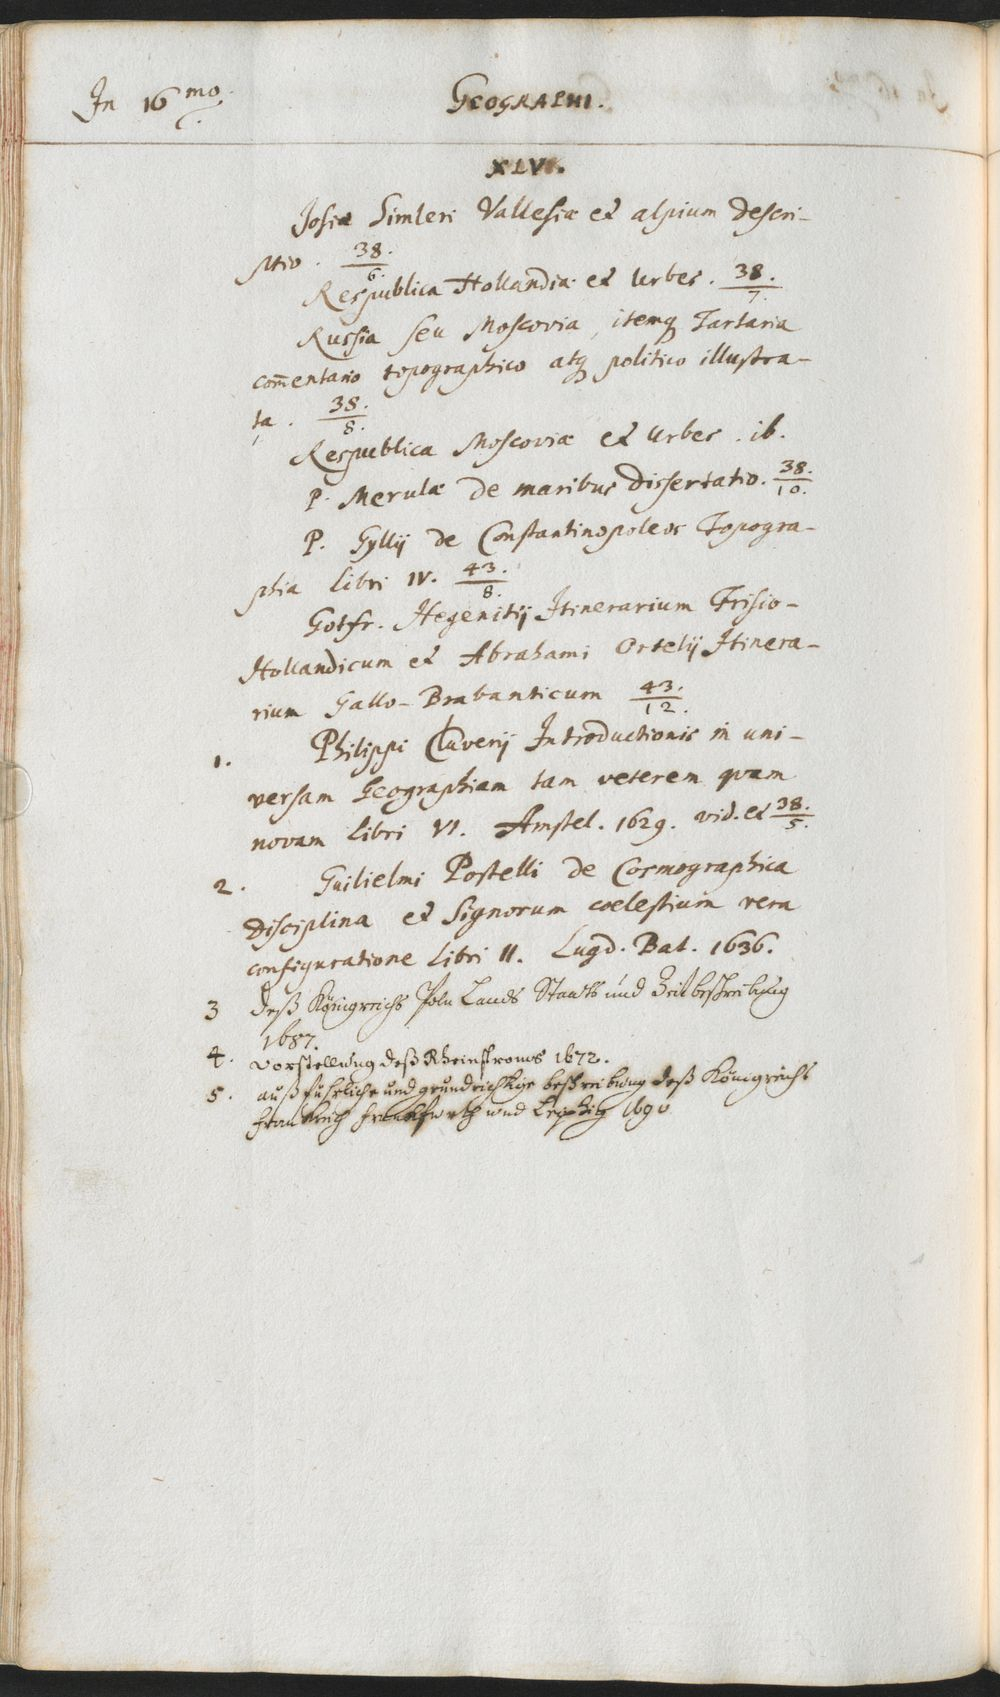 In 16mo.
GEOGRAPHI.
XLVI.
Josiæ Simleri Vallesiæ et alpium descri-
ptio. 38./6.
Respublica Hollandiæ et Urbes. 38./7.
Russia seu Moscovia, itemq Tartaria
com̄entario topographico atq politico illustra-
ta. 38./8.
Respublica Moscoviæ et Urbes. ib.
P. Merulæ de maribus dissertatio. 38./10.
P. Gyllij de Constantinopoleos Topogra-
phia libri IV. 43./8.
Gotfr. Hegenitij Itinerarium Frisio-
Hollandicum et Abrahami Ortelij Itinera-
rium Gallo-Brabanticum 43./12.
1. Philippi Cluverij Introductionis in uni-
versam Geographiam tam veterem quam
novam libri VI. Amstel. 1629. vid. et 38./5.
2. Guilielmi Postelli de Cosmographica
disciplina et Signorum coelestium vera
configuratione Libri II. Lugd. Bat. 1636.
3 deß Königreichs Poln Lands Staats und Zeitbeschreibung
1687.
4. Vorstellung deß Rheinstroms 1672.
5. außfuhrliche und grundrichtige beschreibung deß Königreichs
franckreich franckfurth und Leipzig 1690